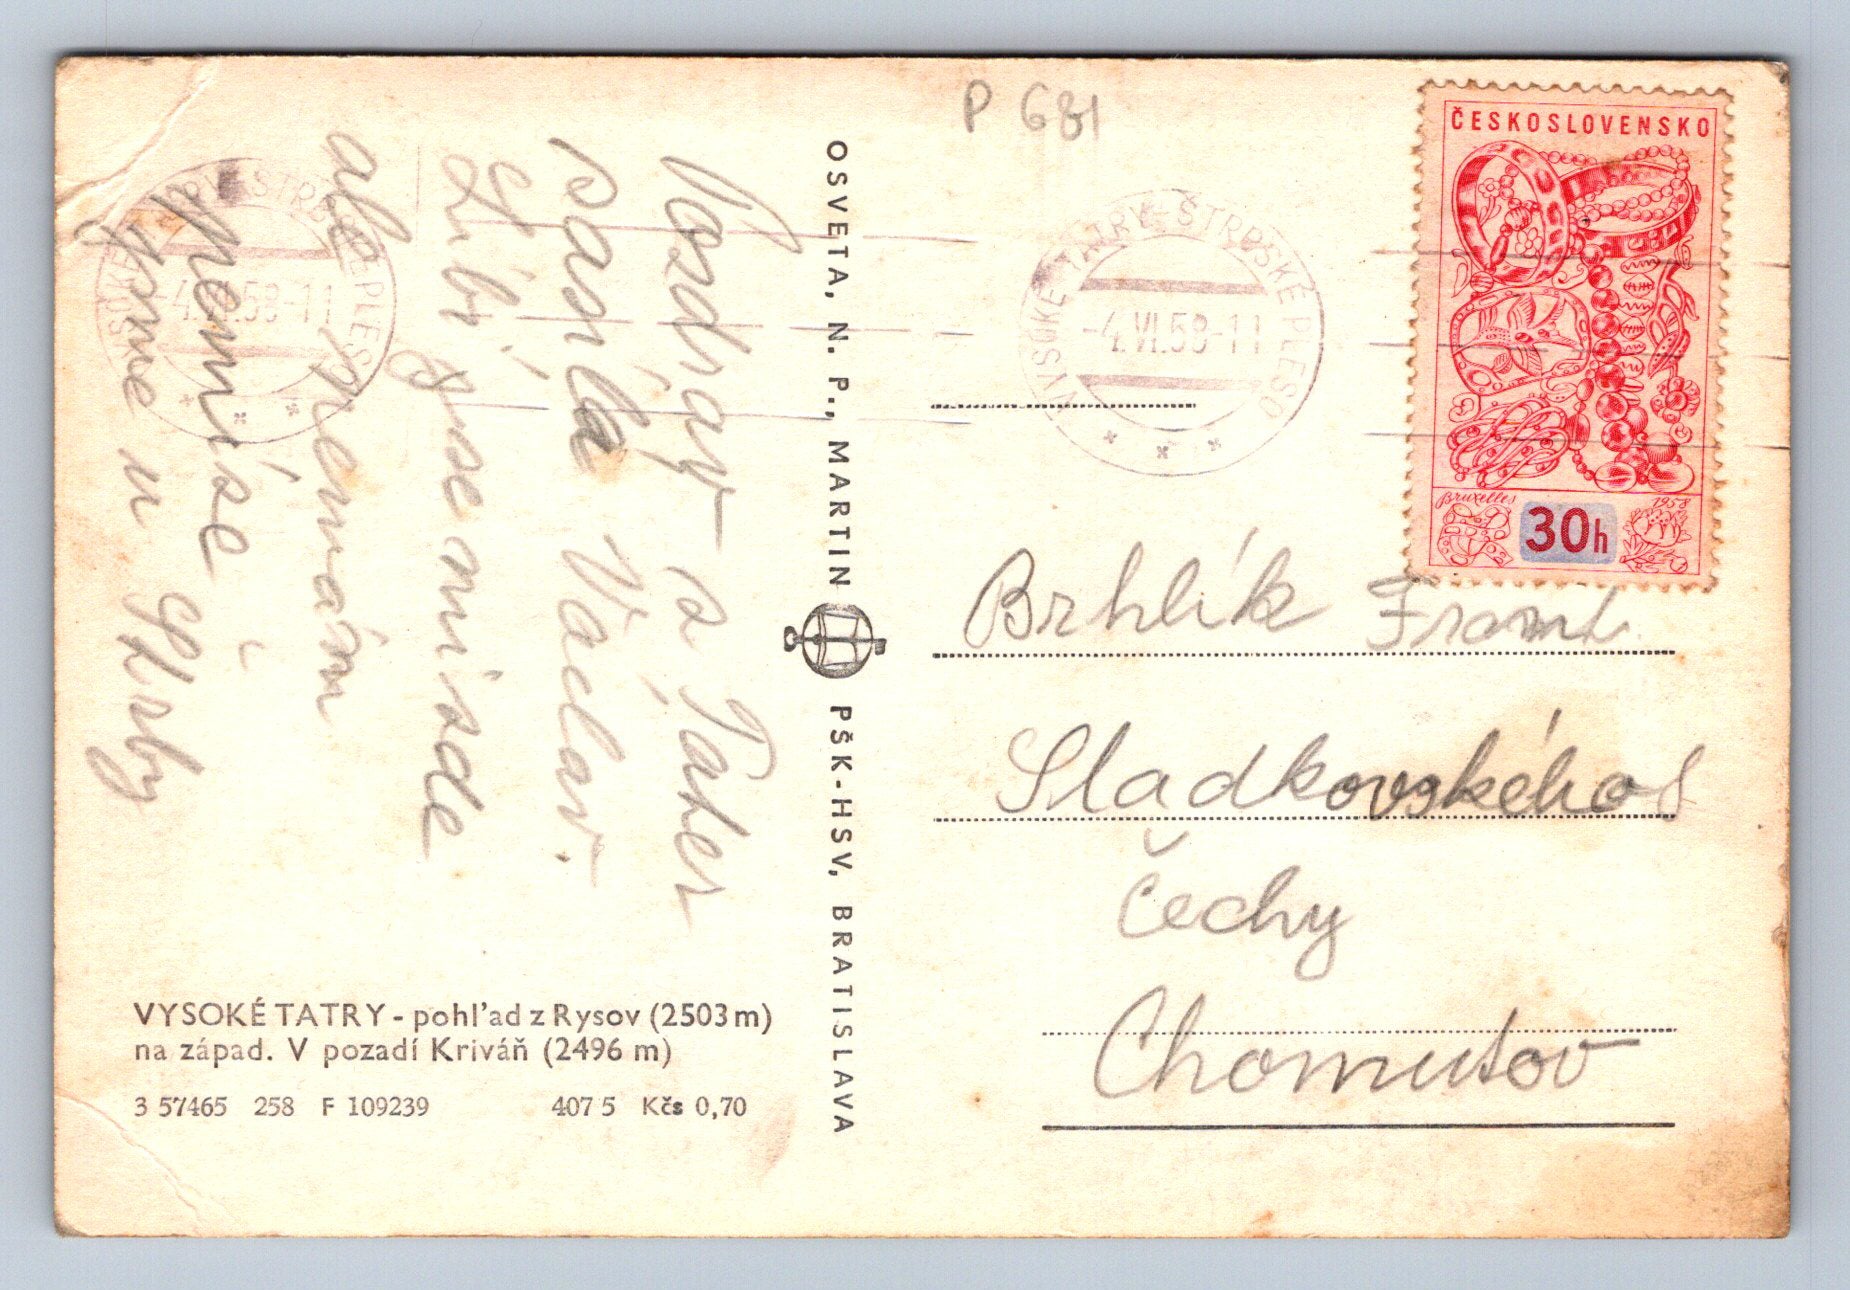 P 681
ČESKOSLOVENSKO
Bruxelles 1958
30h
VYSOKÉ TATRY-ŠTRBSKÉ PLESO
-4.VI.58-11
VYSOKÉ TATRY-ŠTRBSKÉ PLESO
-4.VI.58-11
Pozdrav s Tater
posílá Václav.
Líbí
ale nemám
u Štrby
OSVETA, N. P., MARTIN
PŠK-HSV, BRATISLAVA
Brhlík Frant.
Sladkovského
Čechy
Chomutov
VYSOKÉ TATRY - pohľad z Rysov (2503 m)
na západ. V pozadí Kriváň (2496 m)
3 57465 258 F 109239 407 5 Kčs 0,70